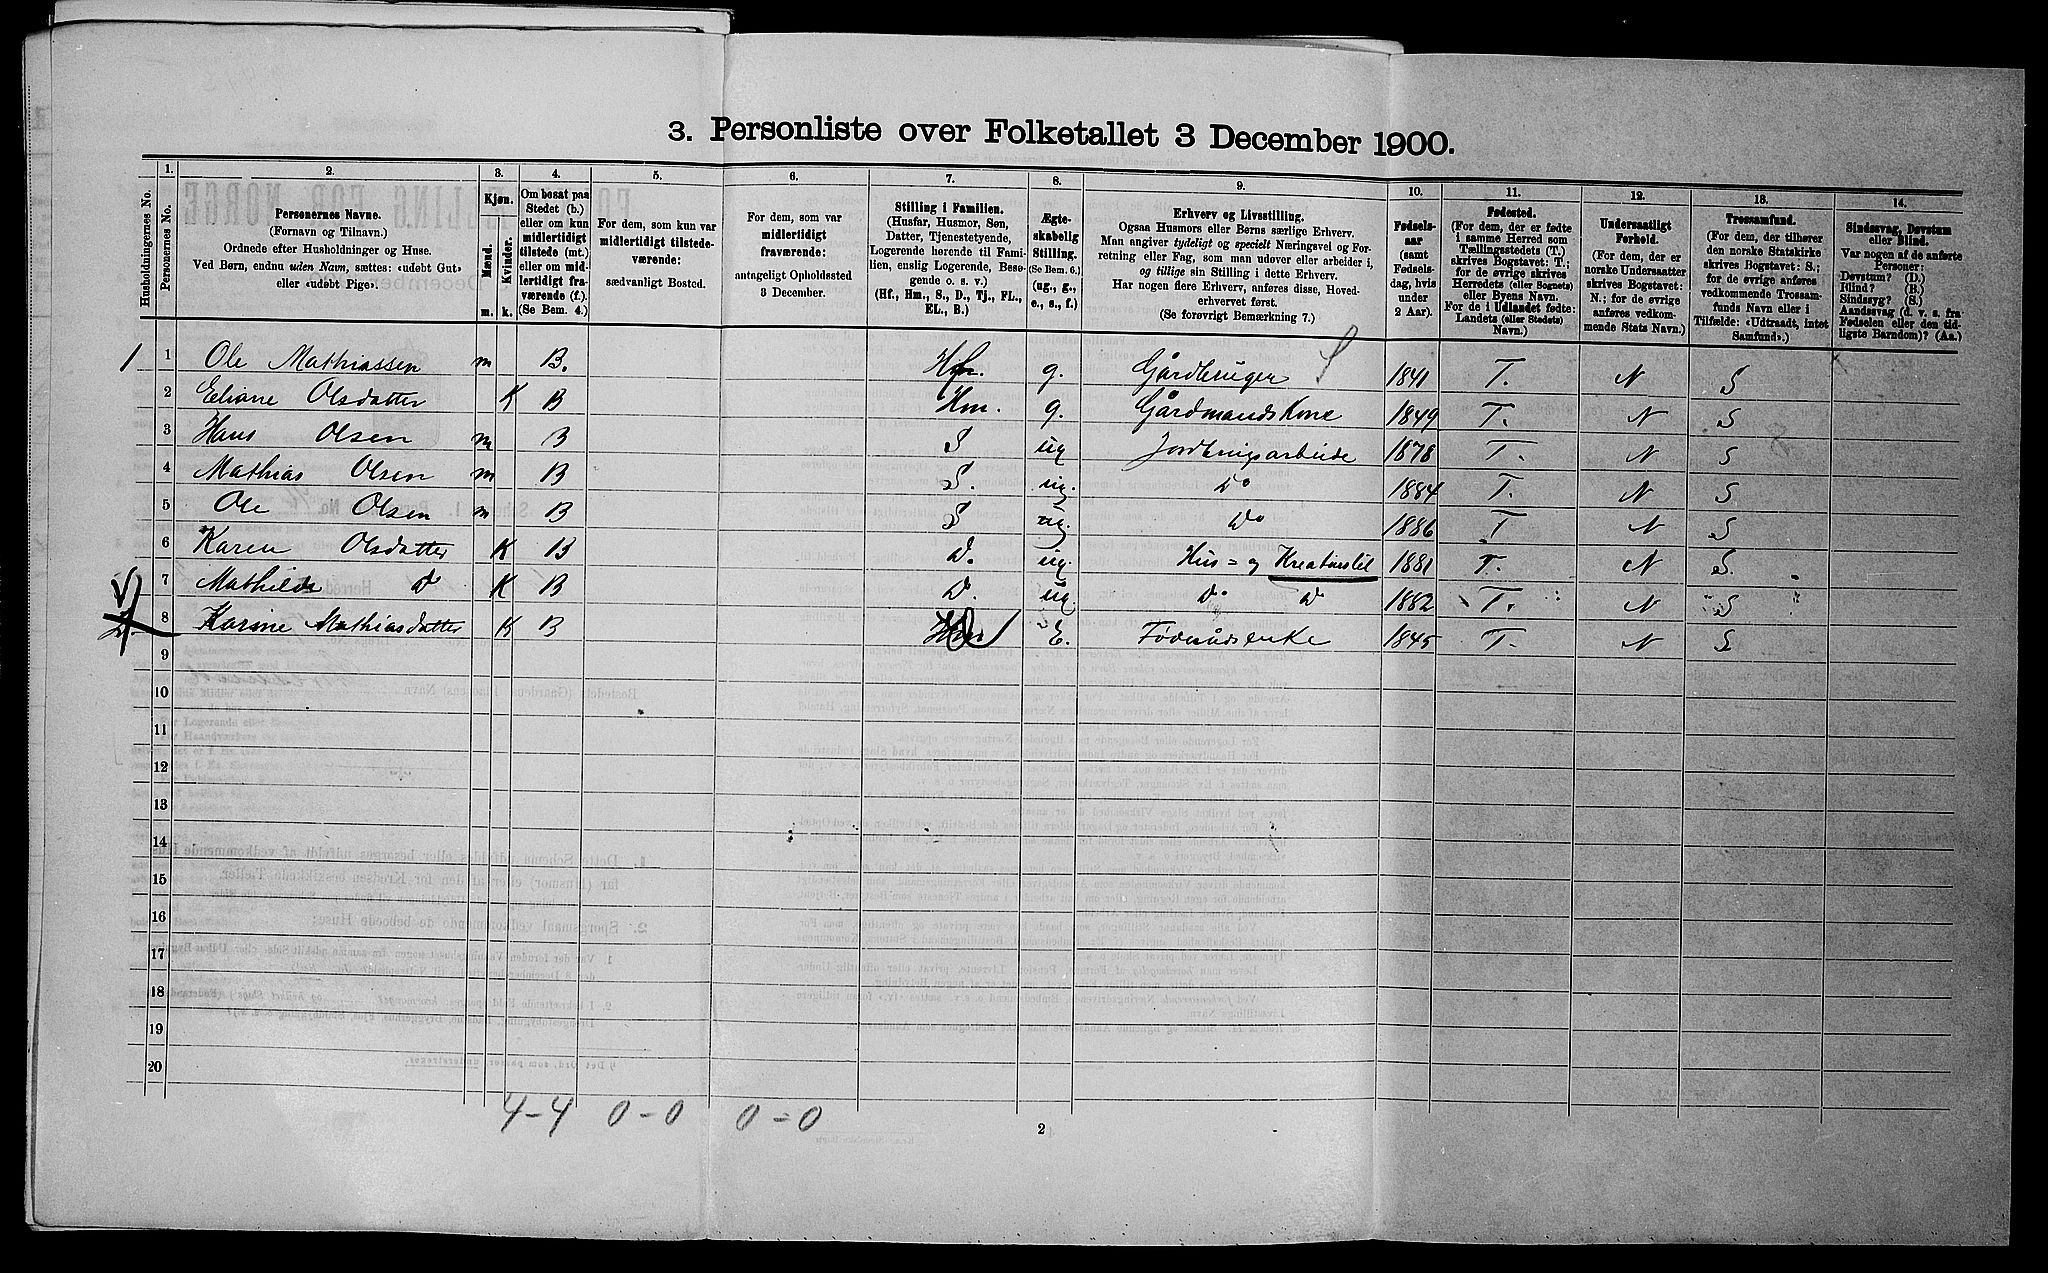 3. Personliste over Folketallet 3 December 1900.
Husholdningernes No.
1. Personernes No.
2.
Personernes Navne.
(Fornavn og Tilnavn.)
Ordnede efter Husholdninger og Huse.
Ved Børn, endnu uden Navn, sættes: «udøbt Gut»
eller «udøbt Pige».
3.
Kjøn.
Mænd.
Kvinder.
m. k.
4.
Om bosat paa
Stedet (b.)
eller om kun
midlertidigt
tilstede (mt.)
eller om mid-
lertidigt fra-
værende (f.).
(Se Bem. 4.)
5.
For dem, som kun var
midlertidigt tilstede-
værende:
sædvanligt Bosted.
6.
For dem, som var
midlertidigt
fraværende:
antageligt Opholdssted
3 December.
7.
Stilling i Familien.
(Husfar, Husmor, Søn,
Datter, Tjenestetyende,
Logerende hørende til Fami-
lien, enslig Logerende, Besø-
gende o. s. v.)
(Hf., Hm., S., D., Tj., FL.,
EL., B.)
8.
Ægte-
skabelig
Stilling.
(Se Bem. 6.)
(ug., g.,
e., s., f.)
9.
Erhverv og Livsstilling.
Ogsaa Husmors eller Børns særlige Erhverv.
Man angiver tydeligt og specielt Næringsvei og For-
retning eller Fag, som man udøver eller arbeider i,
og tillige sin Stilling i dette Erhverv.
Har nogen flere Erhverv, anføres disse, Hoved-
erhvervet først.
(Se forøvrigt Bemærkning 7.)
10.
Fødsels-
aar
(samt
Fødsels-
dag, hvis
under
2 Aar).
11.
Fødested.
(For dem, der er fødte
i samme Herred som
Tællingsstedets (T.)
skrives Bogstavet: T.;
for de øvrige skrives
Herredets (eller Sognets)
eller Byens Navn.
For de i Udlandet fødte:
Landets (eller Stedets)
Navn.)
12.
Undersaatligt
Forhold.
(For dem, der er
norske Undersaatter
skrives Bogstavet:
N.; for de øvrige
anføres vedkom-
mende Stats Navn.)
13.
Trossamfund.
(For dem, der tilhører
den norske Statskirke
skrives Bogstavet: S.;
for de øvrige anføres
vedkommende Trossam-
funds Navn eller i
Tilfælde: «Udtraadt, intet
Samfund».)
14.
Sindssvag, Døvstum
eller Blind.
Var nogen af de anførte
Personer:
Døvstum? (D.)
Blind? (B.)
Sindssyg? (S.)
Aandssvag (d. v. s. fra
Fødselen eller den tid-
ligste Barndom)? (Aa.)
1 1 Ole Mathiassen m B. Hf. g. Gårdbruger S 1841 T. N S
2 Eliane Olsdatter K B Hm. g. Gårdmandskone 1849 T. N S
3 Hans Olsen m B S ug Jordbrugsarbeide 1878 T. N S
4 Mathias Olsen m B S. ug. Do 1884 T. N S
5 Ole Olsen m B S ug. Do 1886 T N S
6 Karen Olsdatter K B D. ug. Hus= og Kreaturstel 1881 T. N S.
7 Mathilde D K B D. ug. Do D 1882 T. N S
8 Karine Mathiasdatter K B E. Føderådsenke 1845 T. N S
9
10
11
12
13
14
15
16
17
18
19
20
4-4 0-0 0=0
2